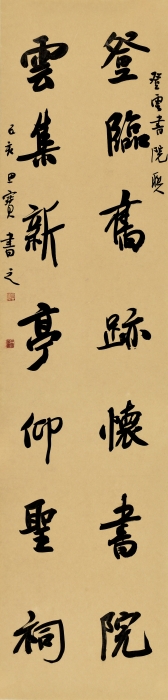 登雲書院聯
登臨舊跡懷書院
雲集新亭仰聖祠
己亥巴寶書之